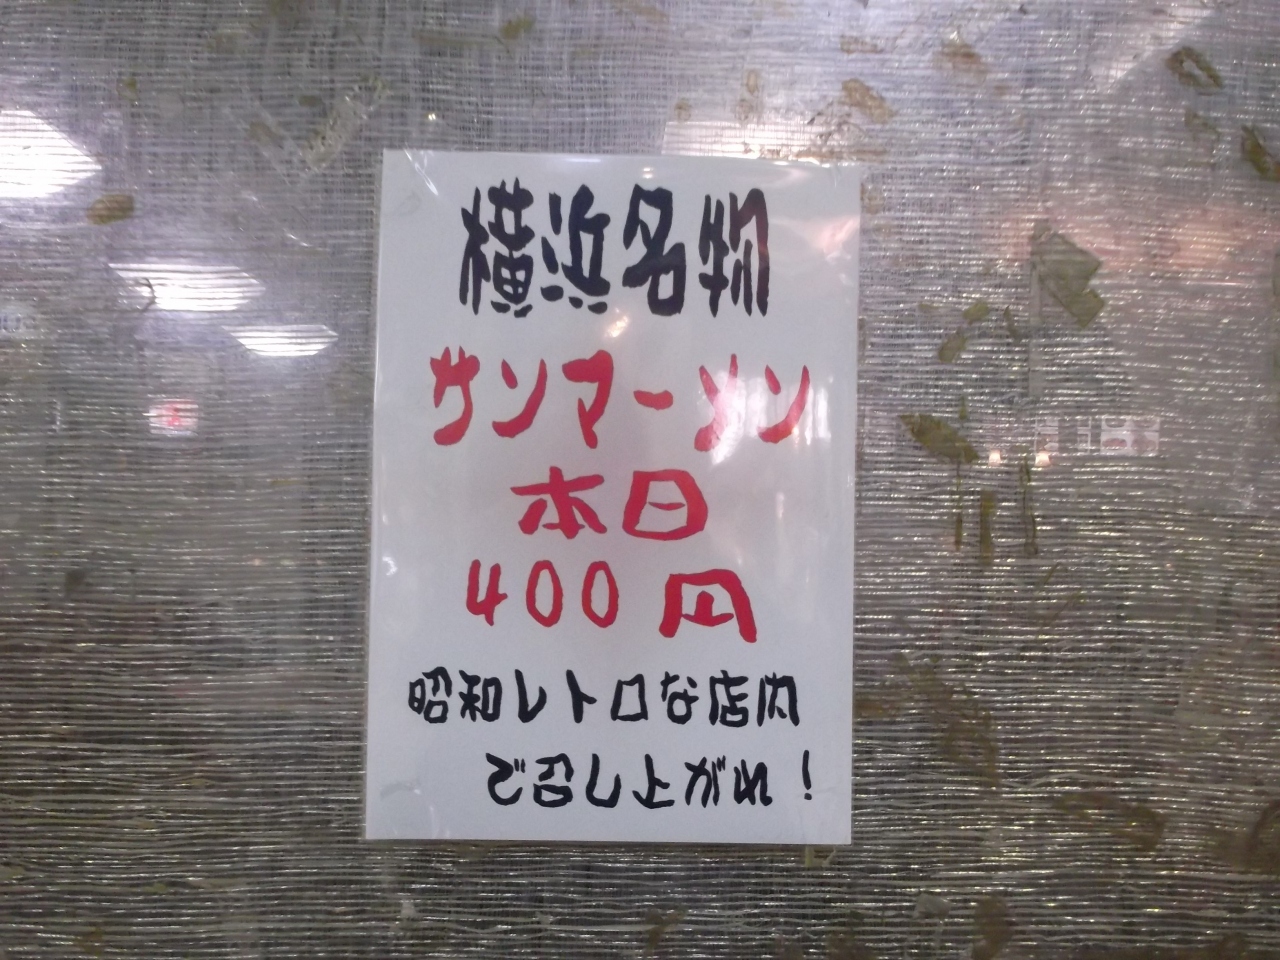 横浜名物
サンマーメン
本日
400円
昭和レトロな店内
で召し上がれ!